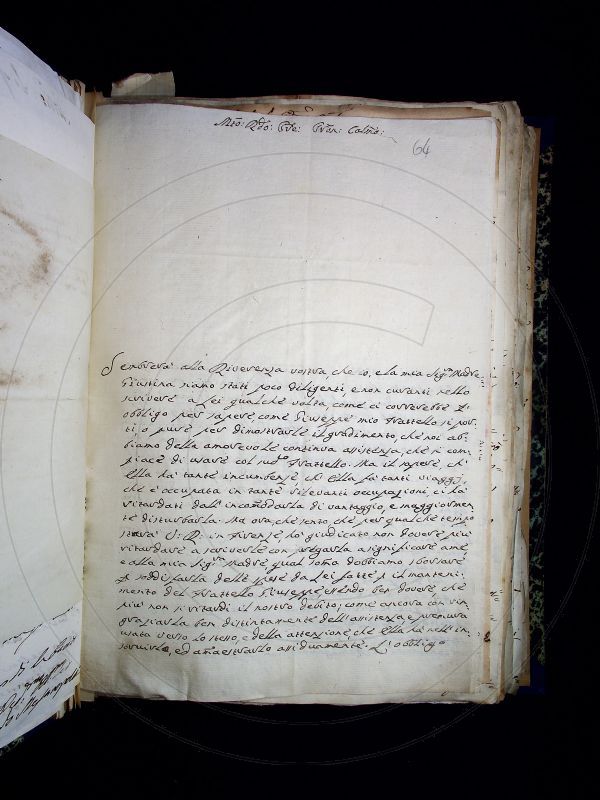 Mto: Rdo: Pre: Pron: Colmo:
64
Sembrerà alla Riverenza vostra, che io, e la mia Sigra Madre
Giustina siamo stati poco diligenti, e non curanti nello
scrivere a Lei qualche volta, come ci correrebbe l'
obbligo per sapere come Giuseppe mio Fratello si por-
ti, o pure per dimostrarle il gradimento, che noi ab-
biamo della amorevole continua assistenza, che si com-
piace di usare col sudo Fratello. Ma il sapere, ch'
Ella ha tante incumbenze, ch' Ella fa tanti viaggi,
che è occupata in tante rilevanti occupazioni, ci ha
ritardati dall' incomodarla di vantaggio, e maggiormen-
te disturbarla. Ma ora, che sento che per qualche tempo
starà V: R: in Firenze ho giudicato non dovere più
ritardare a scriverle con pregarla a significare a me,
e alla mia Sigra Madre qual somma dobbiamo sborsare
p soddisfarla delle spese da Lei fatte p il manteni-
mento del Fratello Giuseppe essendo ben dovere, che
più non si ritardi il nostro debito; come ancora con rin-
graziarla ben distintamente dell' assistenza, e premura
usata verso lo stesso, e della attenzione che Ella ha nell' in-
struirlo, ed amaestrarlo assiduamente. L' obbligo